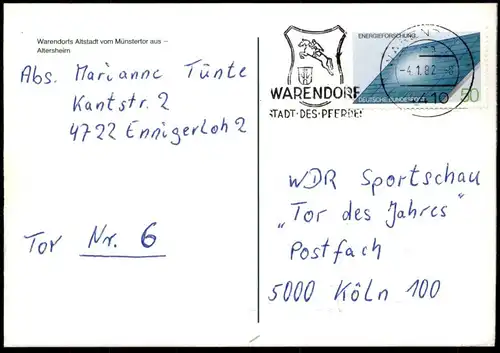 Warendorfs Altstadt vom Münstertor aus –
Altersheim
Abs. Marianne Tünte
Kantstr. 2
4722 Ennigerloh 2
Tor Nr. 6
ENERGIEFORSCHUNG
WARENDORF
STADT·DES·PFERDES
-4.1.82
4410
DEUTSCHE BUNDESPOST
50
WDR Sportschau
„Tor des Jahres"
Postfach
5000 Köln 100